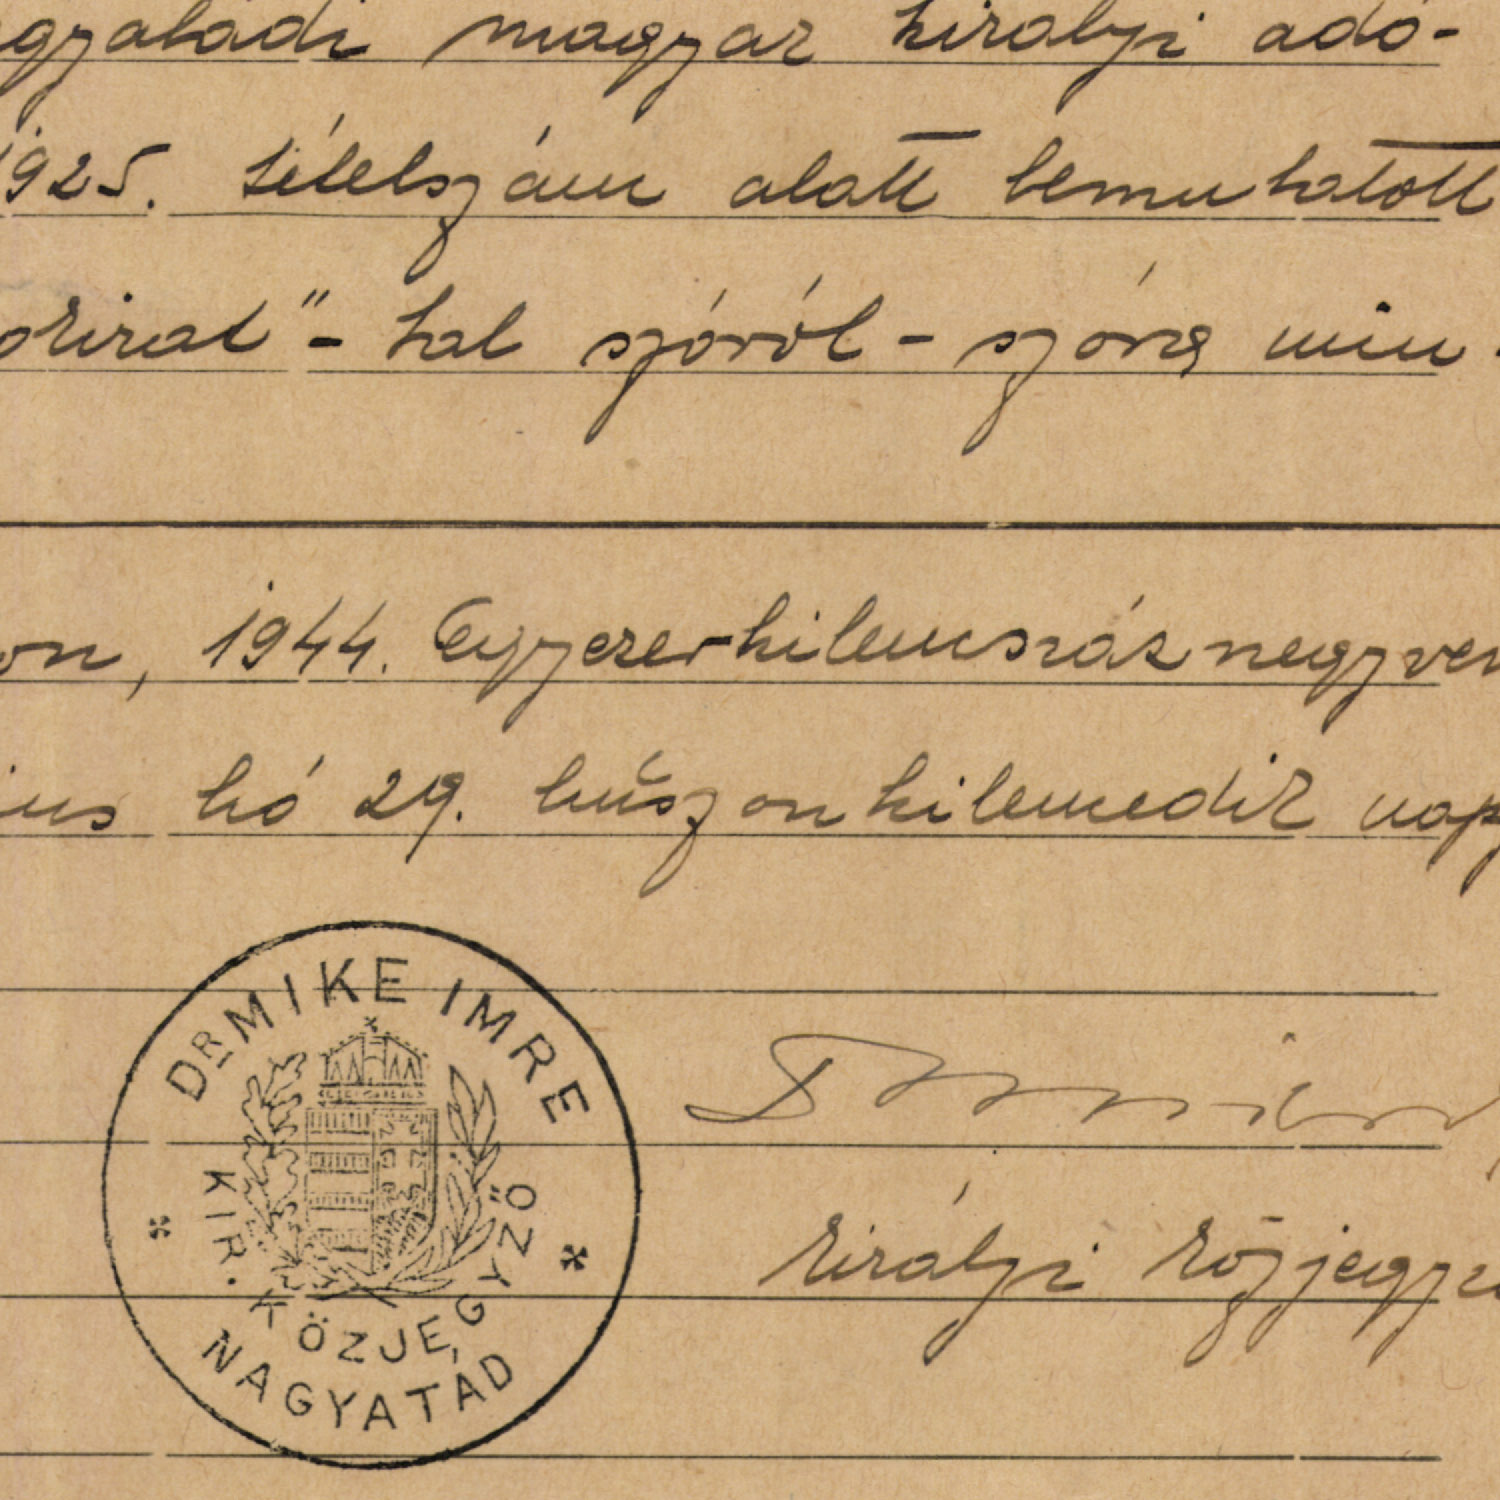 gyatádi magyar királyi adó-
1925. tételszám alatt bemutatott
okirat"- tal szóról - szóra min-
on, 1944. Egyezerkilencszáz negyven
ius hó 29. huszonkilencedik nap
DR MIKE IMRE
KIR. KÖZJEGYZŐ
NAGYATÁD
királyi közjegyző